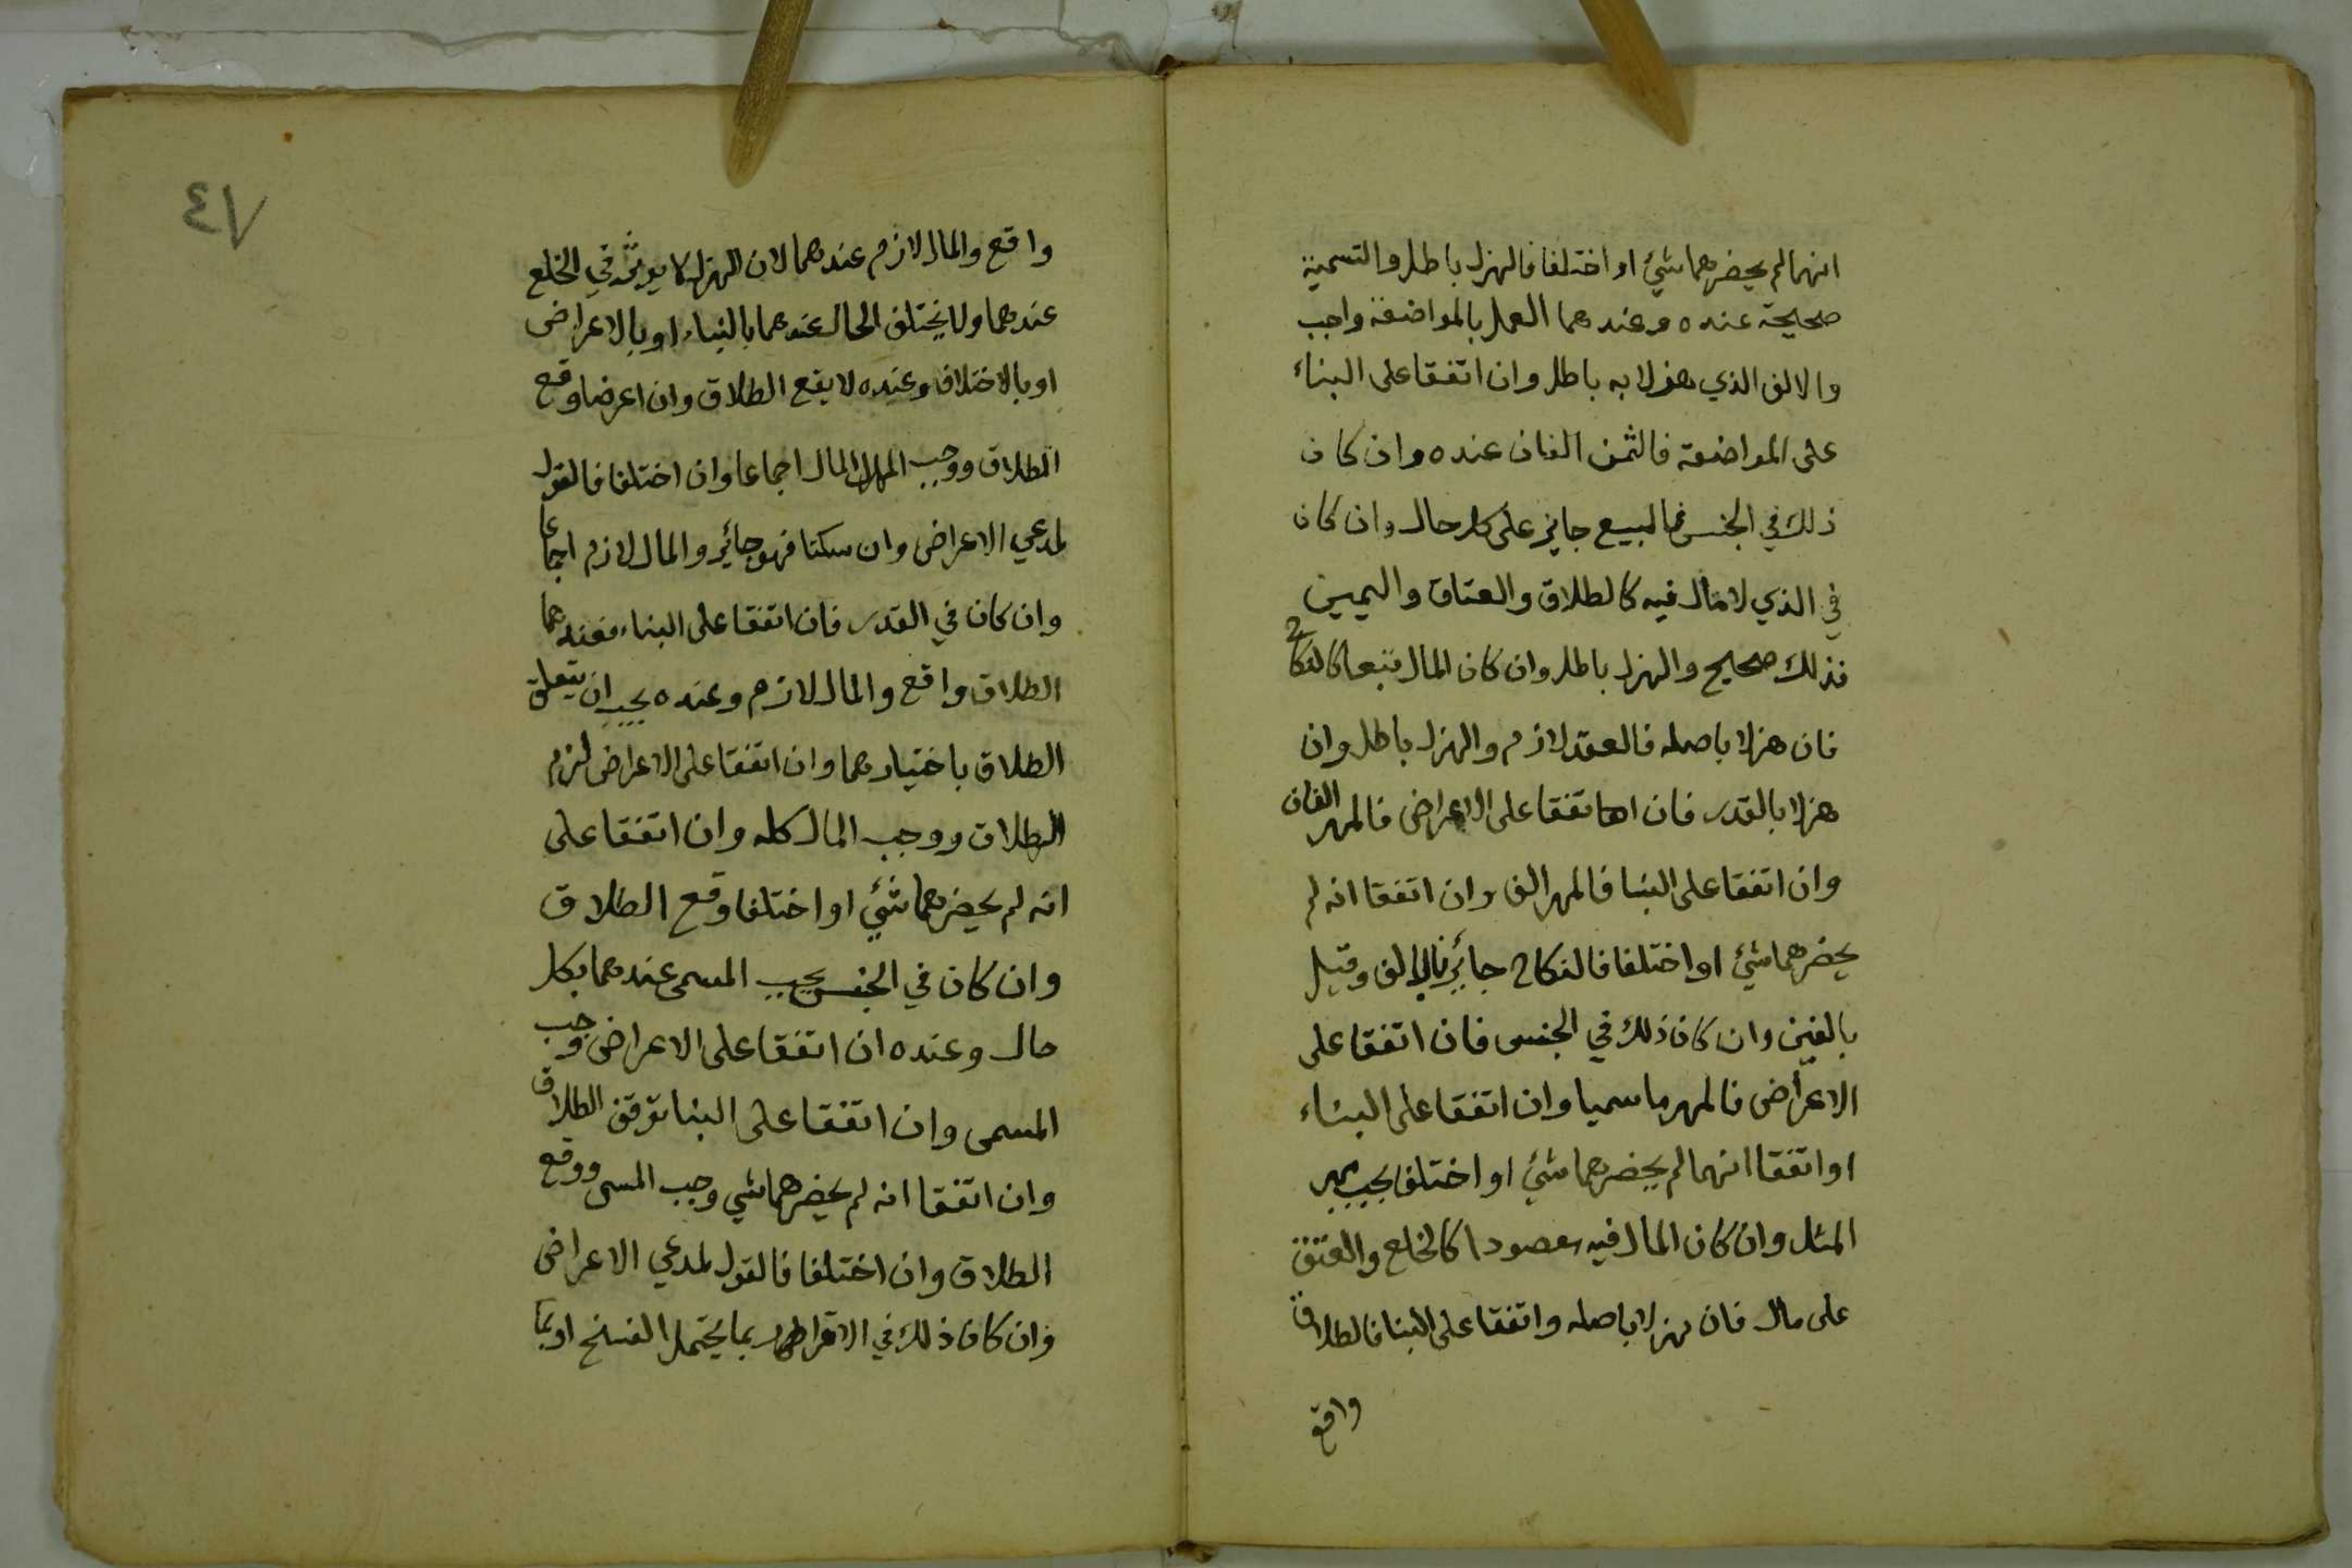 انهما لم يحضرهما شئ او اختلفا فالهزل باطل والتسمية
صحيحة عنده وعندهما العمل بالمواضعة واجب
والالف الذي هزلا به باطل وان اتفقا على البناء
على المواضعة فالثمن الفان عنده وان كان
ذلك في الجنس فالبيع جايز على كل حال وان كان
في الذي لا مال فيه كالطلاق والعتاق واليمين
فذلك صحيح والهزل باطل وان كان المال تبعا كالنكاح
فان هزلا باصله فالعقد لازم والهزل باطل وان
هزلا بالقدر فان اتفقا على الاعراض فالمهر الفان
وان اتفقا على البنا فالمهر الف وان اتفقا انه لم
يحضرهما شئ او اختلفا فالنكاح جائز بالالف وقيل
بالفين وان كان ذلك في الجنس فان اتفقا على
الاعراض فالمهر ما سميا وان اتفقا على البناء
او اتفقا انهما لم يحضرهما شئ او اختلفا يجب مهر
المثل وان كان المال فيه مقصودا كالخلع والعتق
على مال فان هزلا باصله واتفقا على البنا فالطلاق
واقع
٤٧
واقع والمال لازم عندهما لان الهزل لا يوثر في الخلع
عندهما ولا يختلف الحال عندهما بالبناء او بالاعراض
او بالاختلاف وعنده لا يقع الطلاق وان اعرضا وقع
الطلاق ووجب المال اجماعا وان اختلفا فالقول
لمدعي الاعراض وان سكتا فهو جائز والمال لازم اجماعا
وان كان في القدر فان اتفقا على البناء فعندهما
الطلاق واقع والمال لازم وعنده يجب ان يتعلق
الطلاق باختيارهما وان اتفقا على الاعراض لزم
الطلاق ووجب المال كله وان اتفقا على
انه لم يحضرهما شئ او اختلفا وقع الطلاق
وان كان في الجنس يجب المسمى عندهما بكل
حال وعنده ان اتفقا على الاعراض وجب
المسمى وان اتفقا على البنا توقف الطلاق
وان اتفقا انه لم يحضرهما شي وجب المسمى ووقع
الطلاق وان اختلفا فالقول لمدعي الاعراض
وان كان ذلك في الاقرار بما يحتمل الفسخ او بما